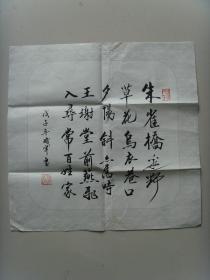 朱雀橋邊野
草花烏衣巷口
夕陽斜舊時
王謝堂前燕飛
入尋常百姓家
戊子年書